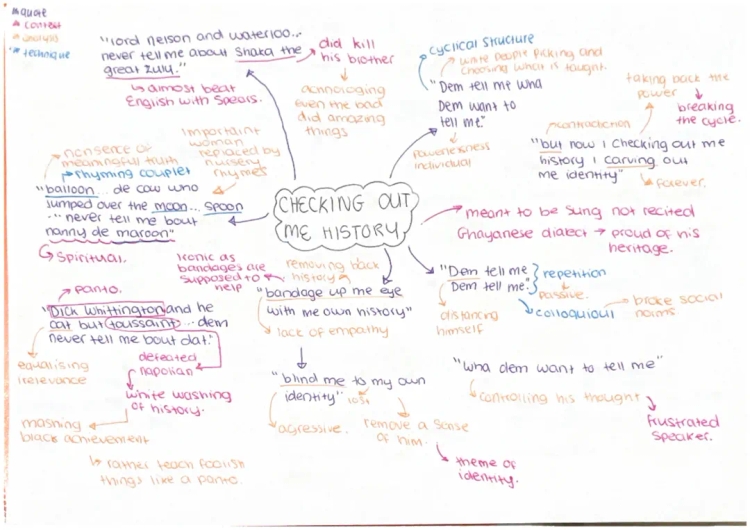 quote
context
analysis
technique
"lord nelson and waterloo...
never tell me about Shaka the
great zulu."
almost beat
English with Spears.
did kill
his brother
acknologing
even the bad
did amazing
things
cyclical structure
white people picking and
choosing what is taught.
"Dem tell me wha
Dem want to
tell me."
powerlesness
individual
taking back the
power
breaking
the cycle.
contradiction
"but now I checking out me
history I carving out
me identity"
forever.
nonsence or
meaningful truth
rhyming couplet
importaint
woman
replaced by
nursery
rhymes
"balloon... de cow who
jumped over the moon... spoon
... never tell me bout
nanny de maroon"
Spiritual.
CHECKING OUT
ME HISTORY
meant to be sung not recited
Ghayanese dialect → proud of his
heritage.
Iconic as
bandages are
supposed to
help
removing back
history
"bandage up me eye
with me own history"
lack of empathy
"Dem tell me
Dem tell me."
repetition
passive.
colloquioul
broke social
norms
distancing
himself
panto.
"Dick whittington and he
cat but toussaint... dem
never tell me bout dat."
equalising
irelevance
defeated
napolian
white washing
of history.
mashing
black achievement
rather teach foolish
things like a panto.
"blind me to my own
identity"
lost
agressive.
remove a sense
of him.
theme of
identity.
"wha dem want to tell me"
controlling his thought
frustrated
speaker.